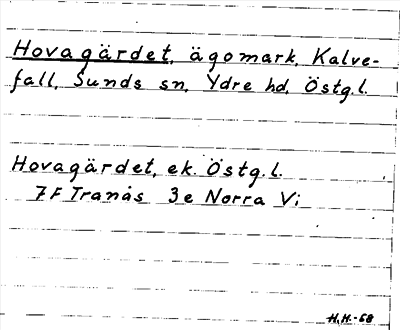 Hovagärdet, ägomark, Kalve-
fall, Sunds sn, Ydre hd, Östg.l.
Hovagärdet, ek. Östg.l.
7F Tranås 3e Norra Vi
H.H.-68